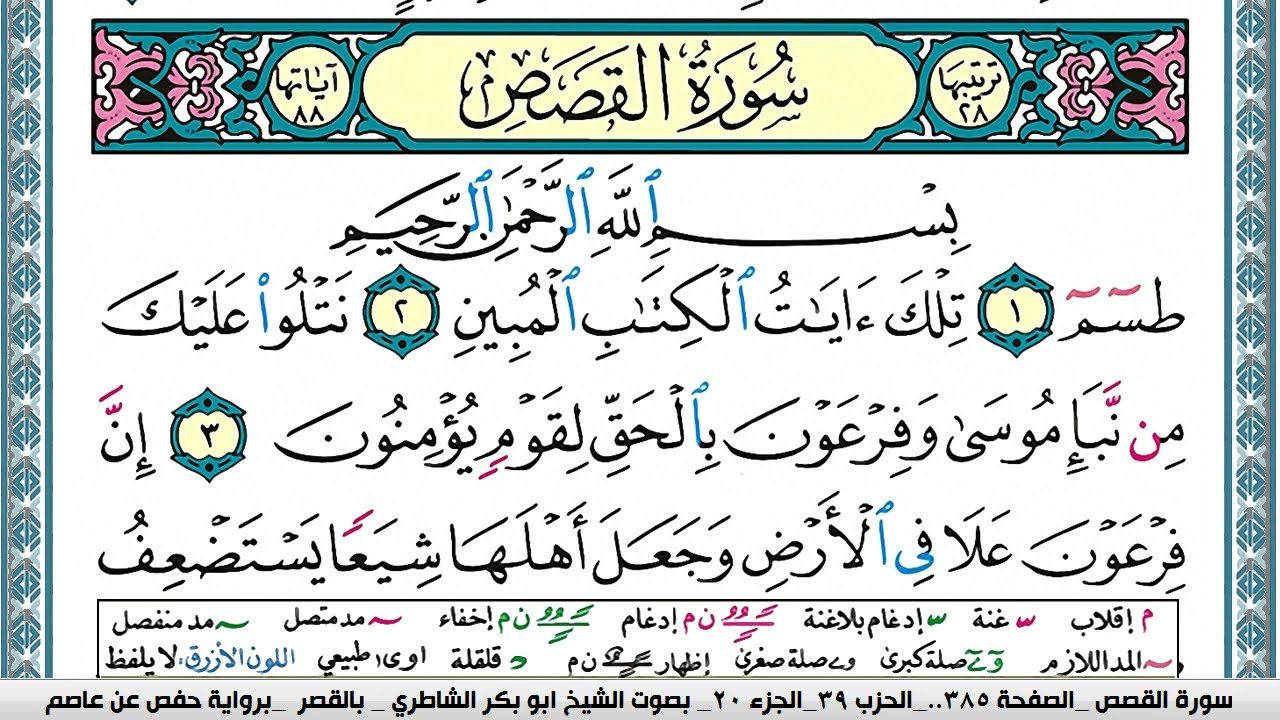 ترتيبها ٢٨ سُورَةُ القَصَصِ آياتها ٨٨
بِسْمِ ٱللَّهِ ٱلرَّحْمَٰنِ ٱلرَّحِيمِ
طسٓمٓ ١ تِلْكَ ءَايَٰتُ ٱلْكِتَٰبِ ٱلْمُبِينِ ٢ نَتْلُوا۟ عَلَيْكَ
مِن نَّبَإِ مُوسَىٰ وَفِرْعَوْنَ بِٱلْحَقِّ لِقَوْمٍ يُؤْمِنُونَ ٣ إِنَّ
فِرْعَوْنَ عَلَا فِى ٱلْأَرْضِ وَجَعَلَ أَهْلَهَا شِيَعًا يَسْتَضْعِفُ
م إقلاب غنة إدغام بلاغنة ن م إدغام ن م إخفاء مد متصل مد منفصل
المد اللازم صلة كبرى صلة صغرى إظهار ن م قلقلة اوى طبيعي اللون الأزرق: لا يلفظ
سورة القصص _الصفحة ٣٨٥.._الحزب ٣٩_الجزء ٢٠_ بصوت الشيخ ابو بكر الشاطري _ بالقصر _برواية حفص عن عاصم